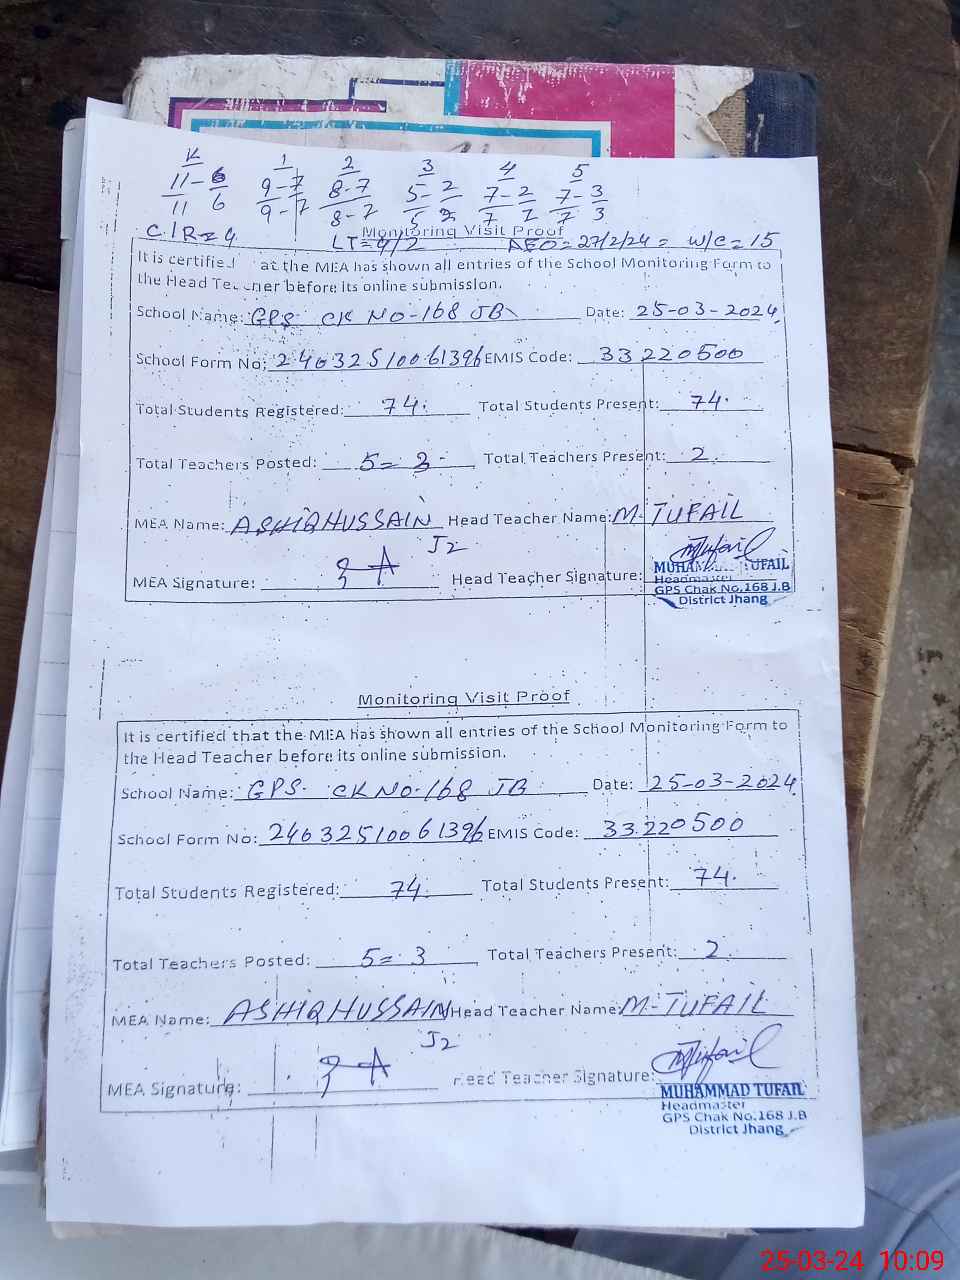 K 1 2 3 4 5
11-6 9-7 8-7 5-2 7-2 7-3
11 6 9-7 8-7 5 2 7 2 7 3
Monitoring Visit Proof
C/R=4 LT=4/2 AEO=27/2/24= W/C=15
It is certified at the MEA has shown all entries of the School Monitoring Form to
the Head Teacher before its online submission.
School Name: GPS CK NO-168 JB Date: 25-03-2024
School Form No: 24032510061396 EMIS Code: 33220500
Total Students Registered: 74. Total Students Present: 74.
Total Teachers Posted: 5= 3 Total Teachers Present: 2.
MEA Name: ASHIQ HUSSAIN Head Teacher Name: M-TUFAIL
J2
MEA Signature: Head Teacher Signature: Mtufail
MUHAMMAD TUFAIL
Headmaster
GPS Chak No.168 J.B
District Jhang
Monitoring Visit Proof
It is certified that the MEA has shown all entries of the School Monitoring Form to
the Head Teacher before its online submission.
School Name: GPS. CK NO-168 JB Date: 25-03-2024
School Form No: 24032510061396 EMIS Code: 33220500
Total Students Registered: 74. Total Students Present: 74.
Total Teachers Posted: 5= 3 Total Teachers Present: 2.
MEA Name: ASHIQ HUSSAIN Head Teacher Name: M-TUFAIL
J2
MEA Signature: Head Teacher Signature: Mtufail
MUHAMMAD TUFAIL
Headmaster
GPS Chak No.168 J.B
District Jhang
25-03-24 10:09